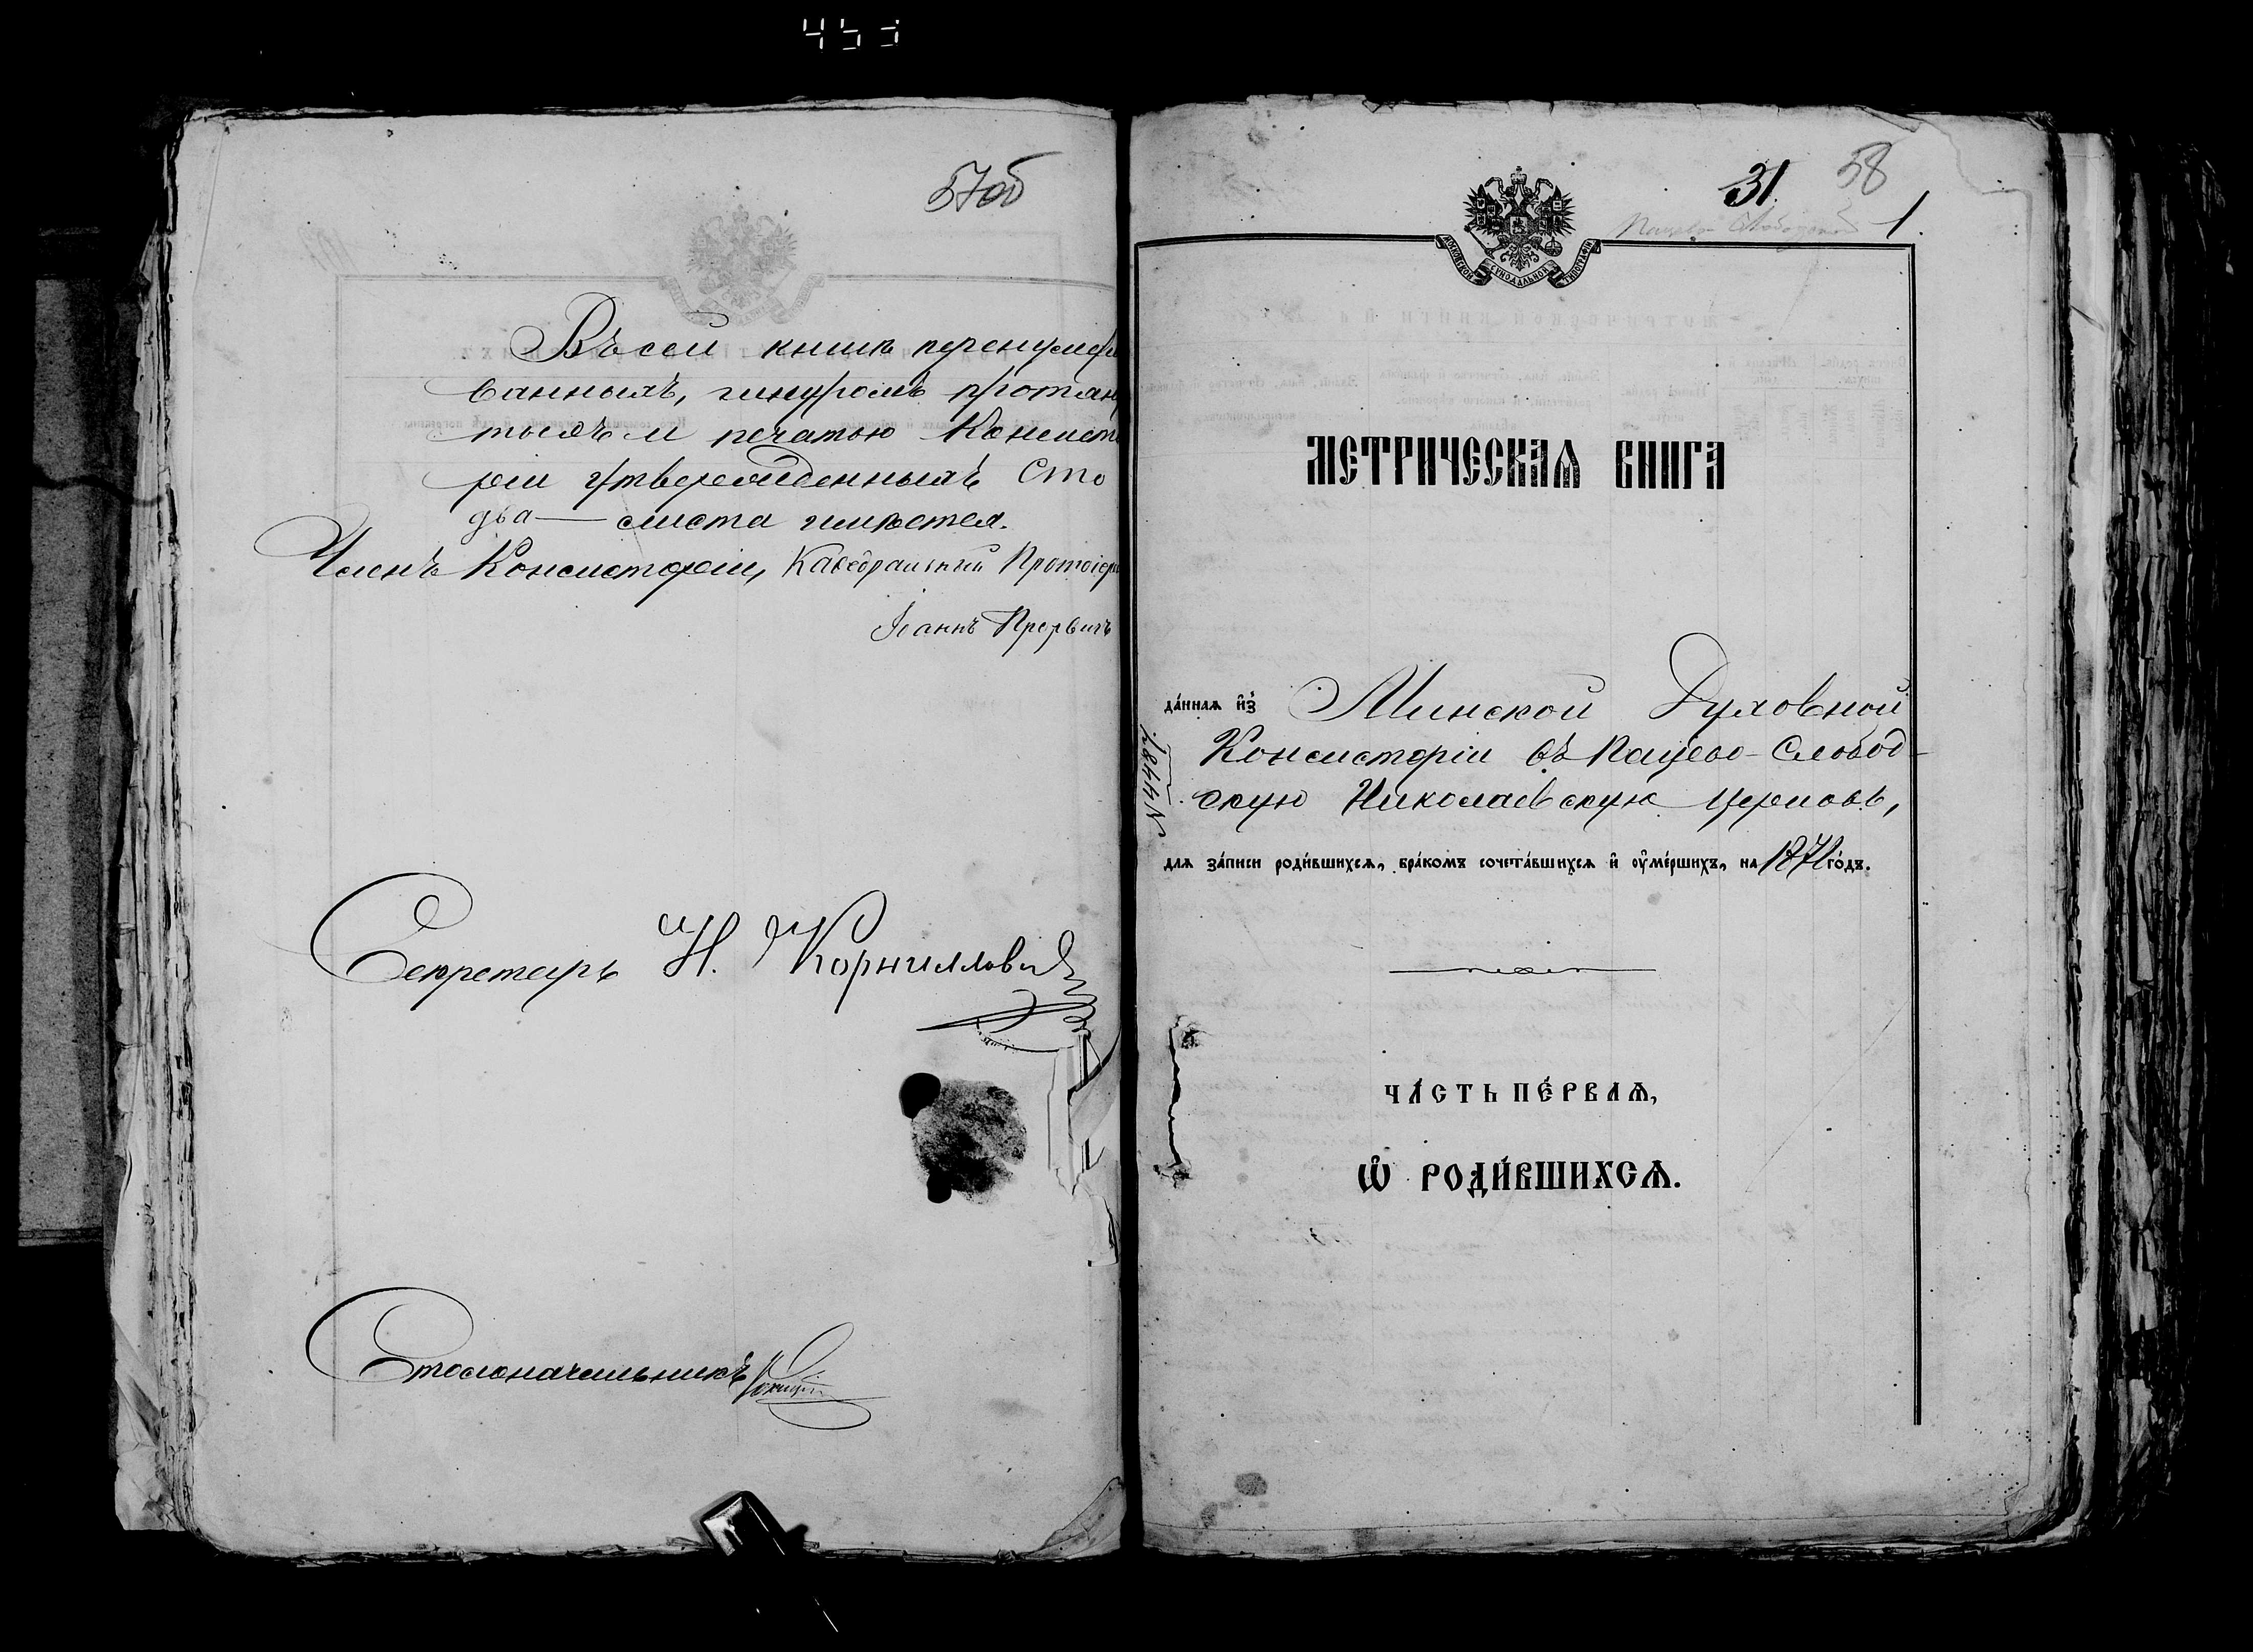 57об
Въ сей книгѣ перенумеро
ванныхъ, шнуромъ протян
тыхъ и печатью Консист
ріи утвержденныхъ сто
два — листа имѣется.
Членъ Консисторіи, Каѳедральный Протоіер
Іоаннъ
Секретарь Н. Корниллович
Столоначальникъ
31.
58
1.
МОСКОВСКОЙ СУНОДАЛЬНОЙ ТИПОГРАФІИ
МЕТРИЧЕСКАѦ КНИГА
да́ннаѧ и҆з̾ Минской Духовной
Консисторіи въ Пацево-Слобод-
скую Николаевскую церковь,
для за́писи роди́вшихсѧ, бра́комъ сочета́вшихсѧ и҆ ᲂу҆ме́ршихъ, на 1871 го́дъ.
ЧА́СТЬ ПЕ́РВАѦ,
Ѡ҆ РОДИ́ВШИХСѦ.